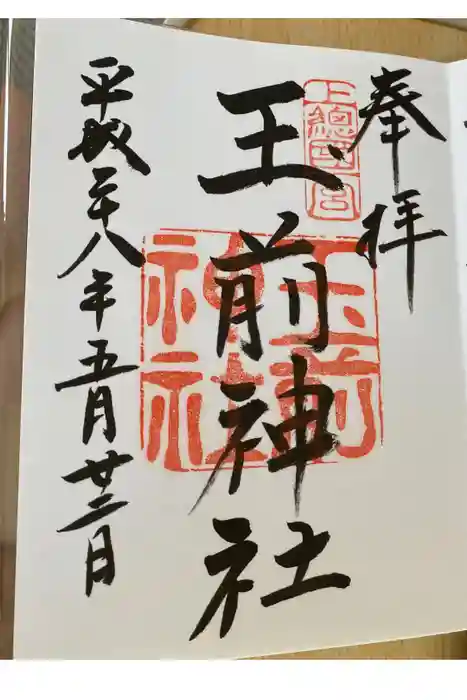 奉拝
上總國一宮
玉前神社
玉前
神社
平成二十八年五月廿二日